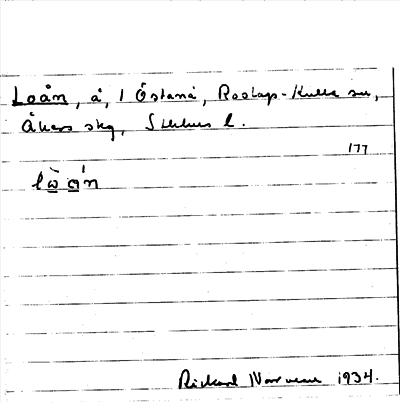 Loån, å, i Östanå, Roslags-Kulla sn,
Åkers skg, Sthlms l.
177
lò̱a̱'n
Rickard 1934.